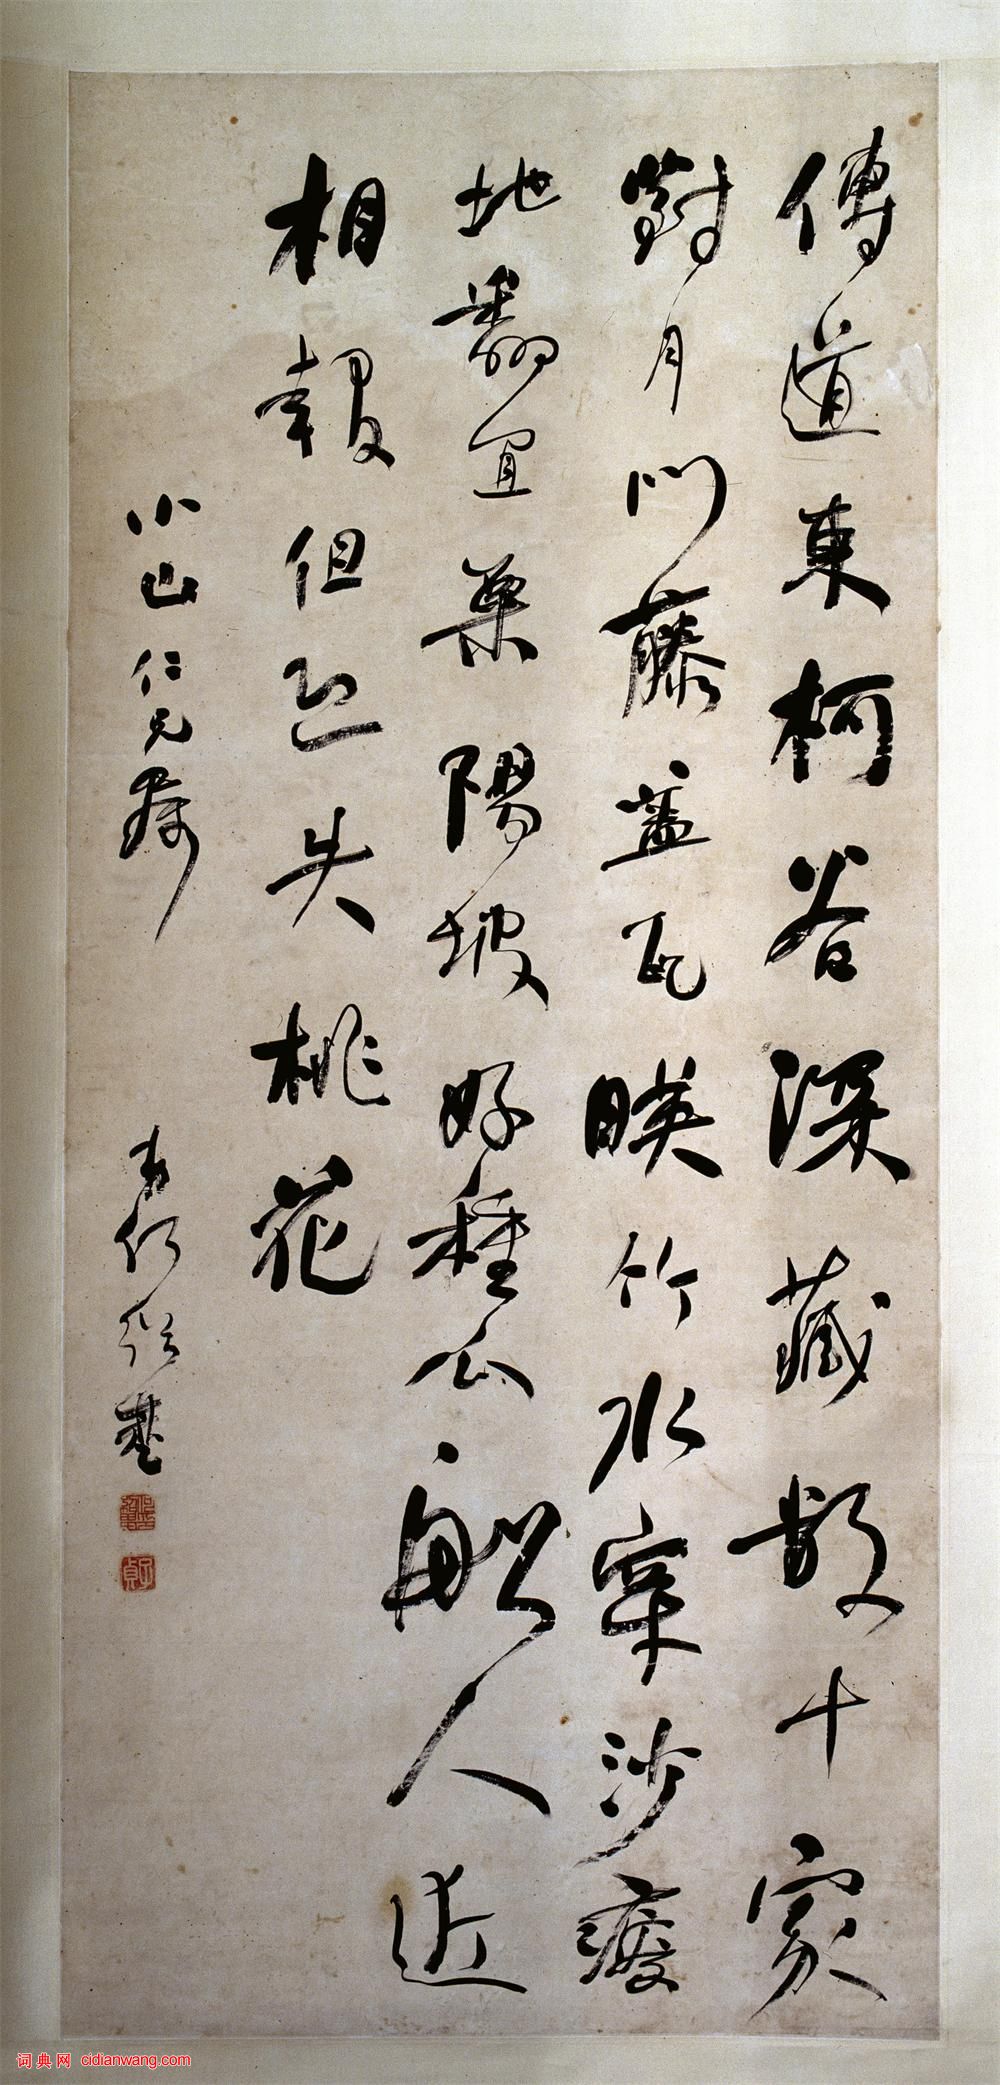 傳道東柯谷深藏數十家
對月門藤蓋瓦暎竹水穿沙瘦
地翻宜粟陽坡好種瓜船人近
相報但恐失桃花
小山仁兄屬
弟何紹基
何紹基
子貞
词典网 cidianwang.com